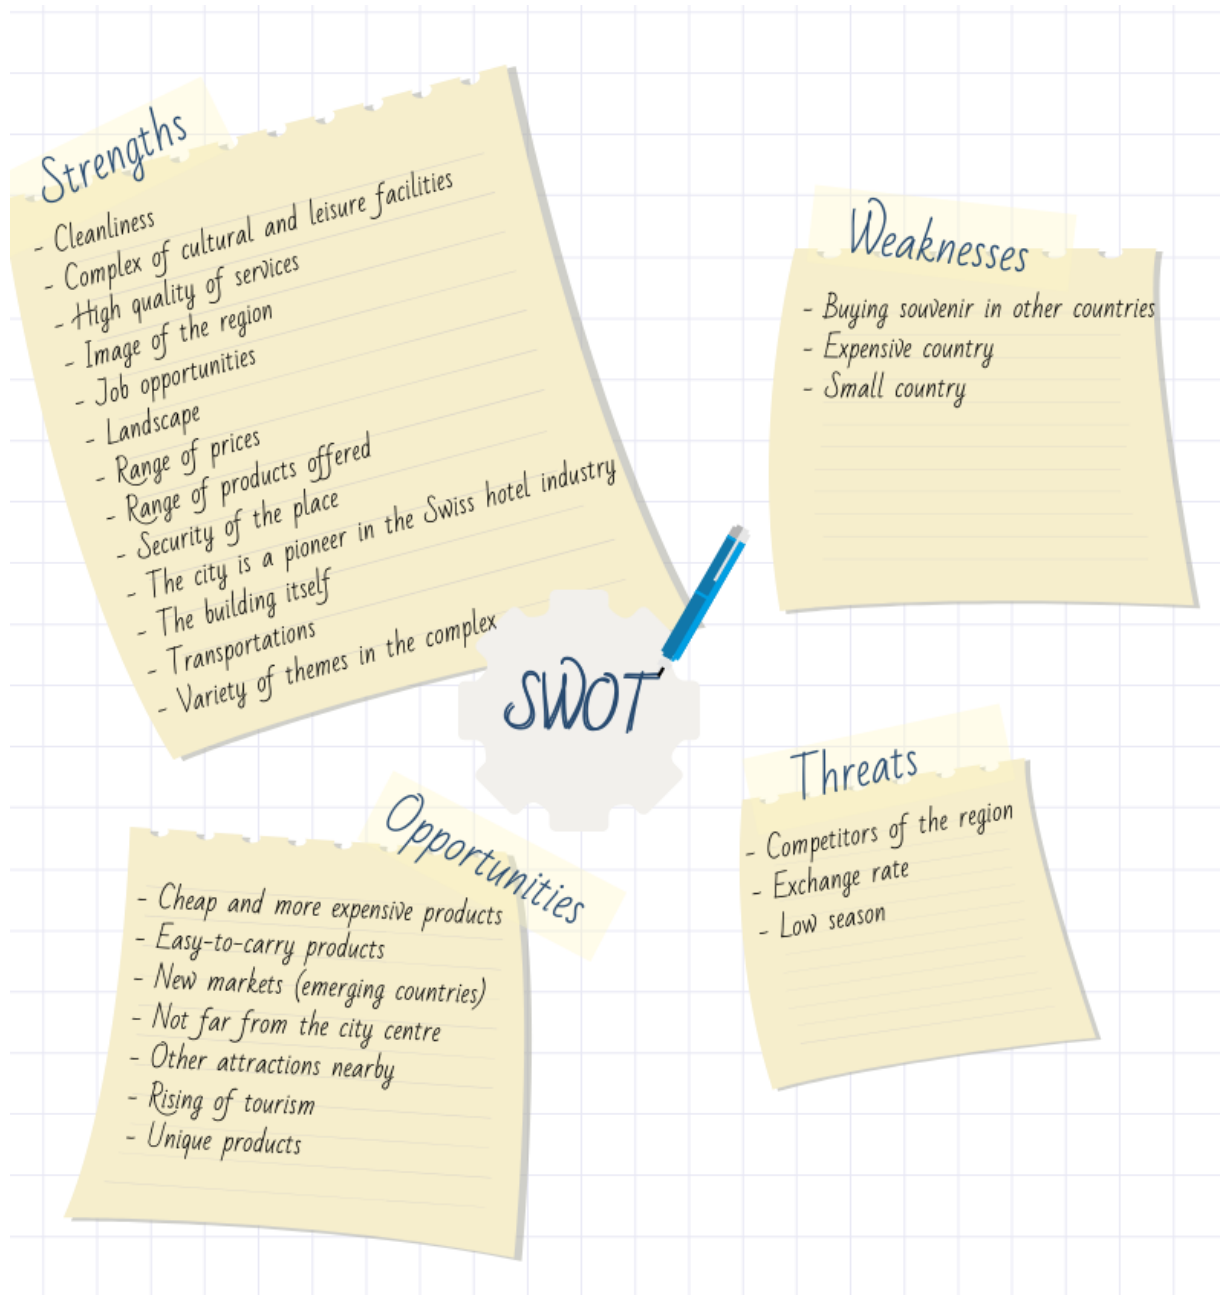 Strengths
- Cleanliness
- Complex of cultural and leisure facilities
- High quality of services
- Image of the region
- Job opportunities
- Landscape
- Range of prices
- Range of products offered
- Security of the place
- The city is a pioneer in the Swiss hotel industry
- The building itself
- Transportations
- Variety of themes in the complex
Weaknesses
- Buying souvenir in other countries
- Expensive country
- Small country
SWOT
Opportunities
- Cheap and more expensive products
- Easy-to-carry products
- New markets (emerging countries)
- Not far from the city centre
- Other attractions nearby
- Rising of tourism
- Unique products
Threats
- Competitors of the region
- Exchange rate
- Low season